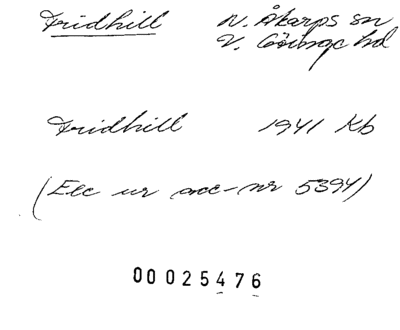 Fridhill N. Åkarps sn
V. Göinge hd
Fridhill 1941 Kb
(Exc ur acc-nr 5394)
00025476